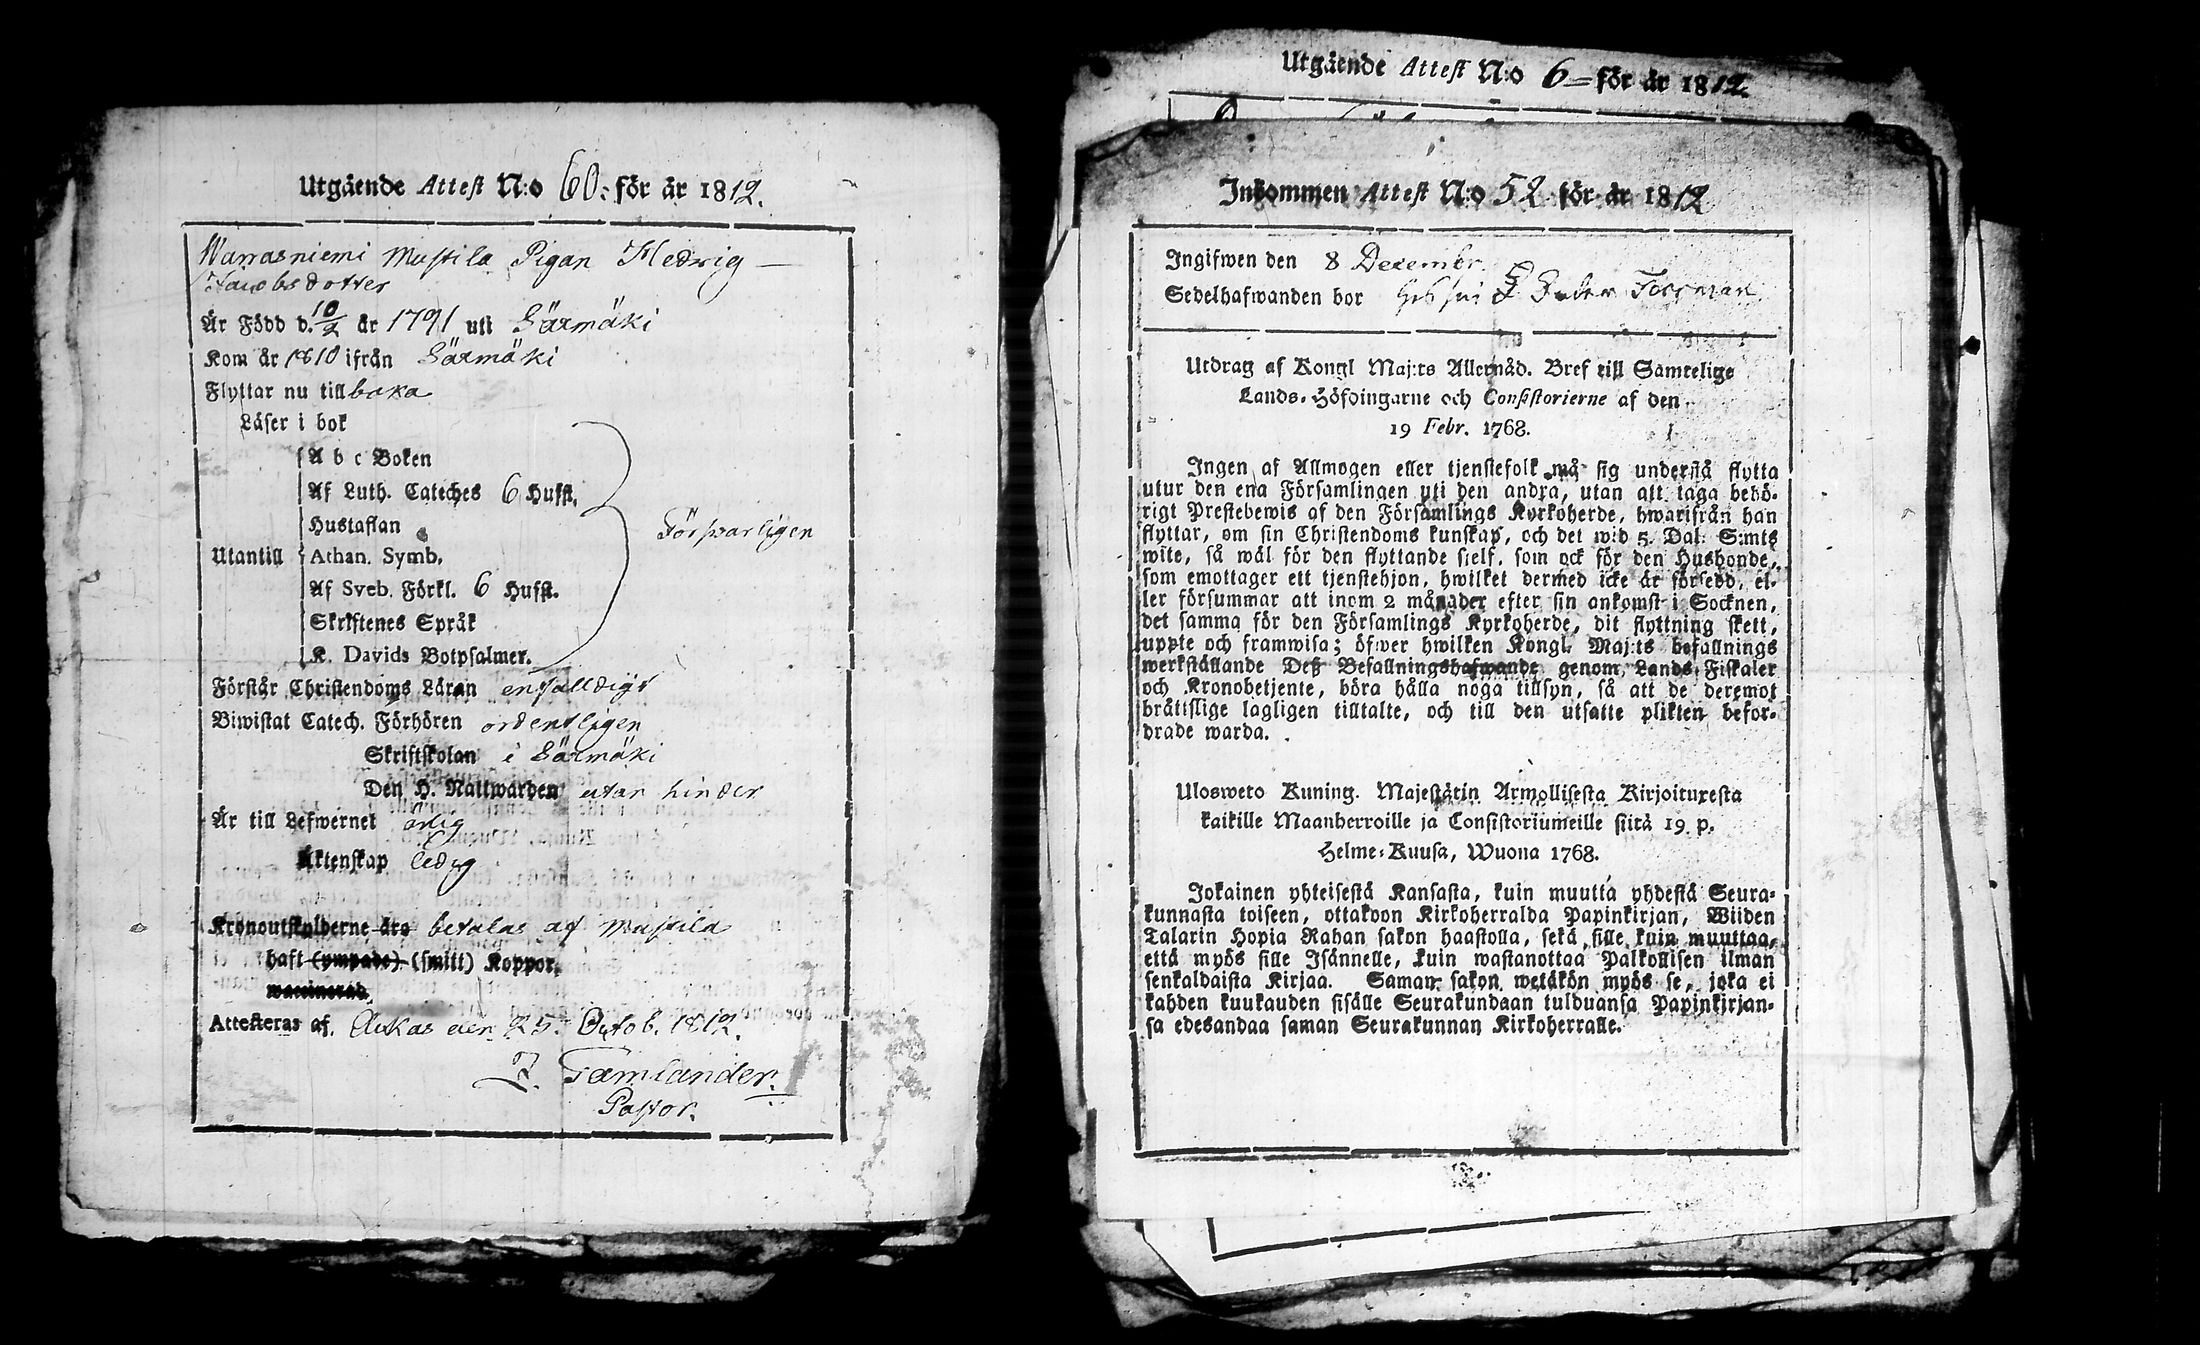 Utgående Attest N:o 60: för år 1812.
Warrasniemi Mustila Pigan Hedvig —
Jacobsdotter
Är Född d. 10/2 år 1791 uti Särmäki
Kom år 1810 ifrån Särmäki
Flyttar nu tillbaka
Läser i bok
A b c Boken
Af Luth. Cateches 6 Hufst.
Hustaflan
Försvarligen
Utantill
Athan. Symb.
Af Sveb. Förkl. 6 Hufst.
Skriftenes Språk
K. Davids Botpsalmer.
Förstår Christendoms Läran enfalldigt
Biwistat Catech. Förhören ordentligen
Skriftskolan i Särmäki
Den H. Nattwarden utan hinder
Är till Lefwernet ärlig
Äktenskap ledig
Kronoutskylderne äro betalas af Mustila
haft (ympade) (smitt) Koppor,
waccinerad.
Attesteras af. Aukas den 25. Octob. 1812.
J. Tamlander.
Pastor.
Utgående Attest N:o 6= för år 1812.
Inkommen Attest N:o 52 för år 1812
Ingifwen den 8 Decembr.
Sedelhafwanden bor hos
Utdrag af Kongl Maj:ts Allernåd. Bref till Samtelige
Lands-Höfdingarne och Consistorierne af den
19 Febr. 1768.
Ingen af Allmogen eller tjenstefolk må sig understå flytta
utur den ena Församlingen uti den andra, utan att taga behö-
rigt Prestebewis af den Församlings Kyrkoherde, hwarifrån han
flyttar, om sin Christendoms kunskap, och det wid 5. Dal: S:mts
wite, så wäl för den flyttande sielf, som ock för den Husbonde,
som emottager ett tjenstehjon, hwilket dermed icke är försedd, el-
ler försummar att inom 2 månader efter sin ankomst i Socknen,
det samma för den Församlings Kyrkoherde, dit flyttning skett,
uppte och framwisa; öfwer hwilken Kongl. Maj:ts befallnings
werkställande Deß Befallningshafwande genom Lands Fiskaler
och Kronobetjente, böra hålla noga tillsyn, så att de deremot
bråttslige lagligen tilltalte, och till den utsatte plikten befor-
drade warda.
Ulosweto Kuning. Majestätin Armollisesta Kirjoituxesta
kaikille Maanherroille ja Consistoriumeille siitä 19. p.
Helme-Kuusa, Wuona 1768.
Jokainen yhteisestä Kansasta, kuin muutta yhdestä Seura-
kunnasta toiseen, ottakoon Kirkoherralda Papinkirjan, Wiiden
Talarin Hopia Rahan sakon haastolla, sekä sille kuin muuttaa,
että myös sille Isännelle, kuin wastanottaa Palkollisen ilman
senkaldaista Kirjaa. Saman sakon wetäkön myös se, joka ei
kahden kuukauden sisälle Seurakundaan tulduansa Papinkirjan-
sa edesandaa saman Seurakunnan Kirkoherralle.